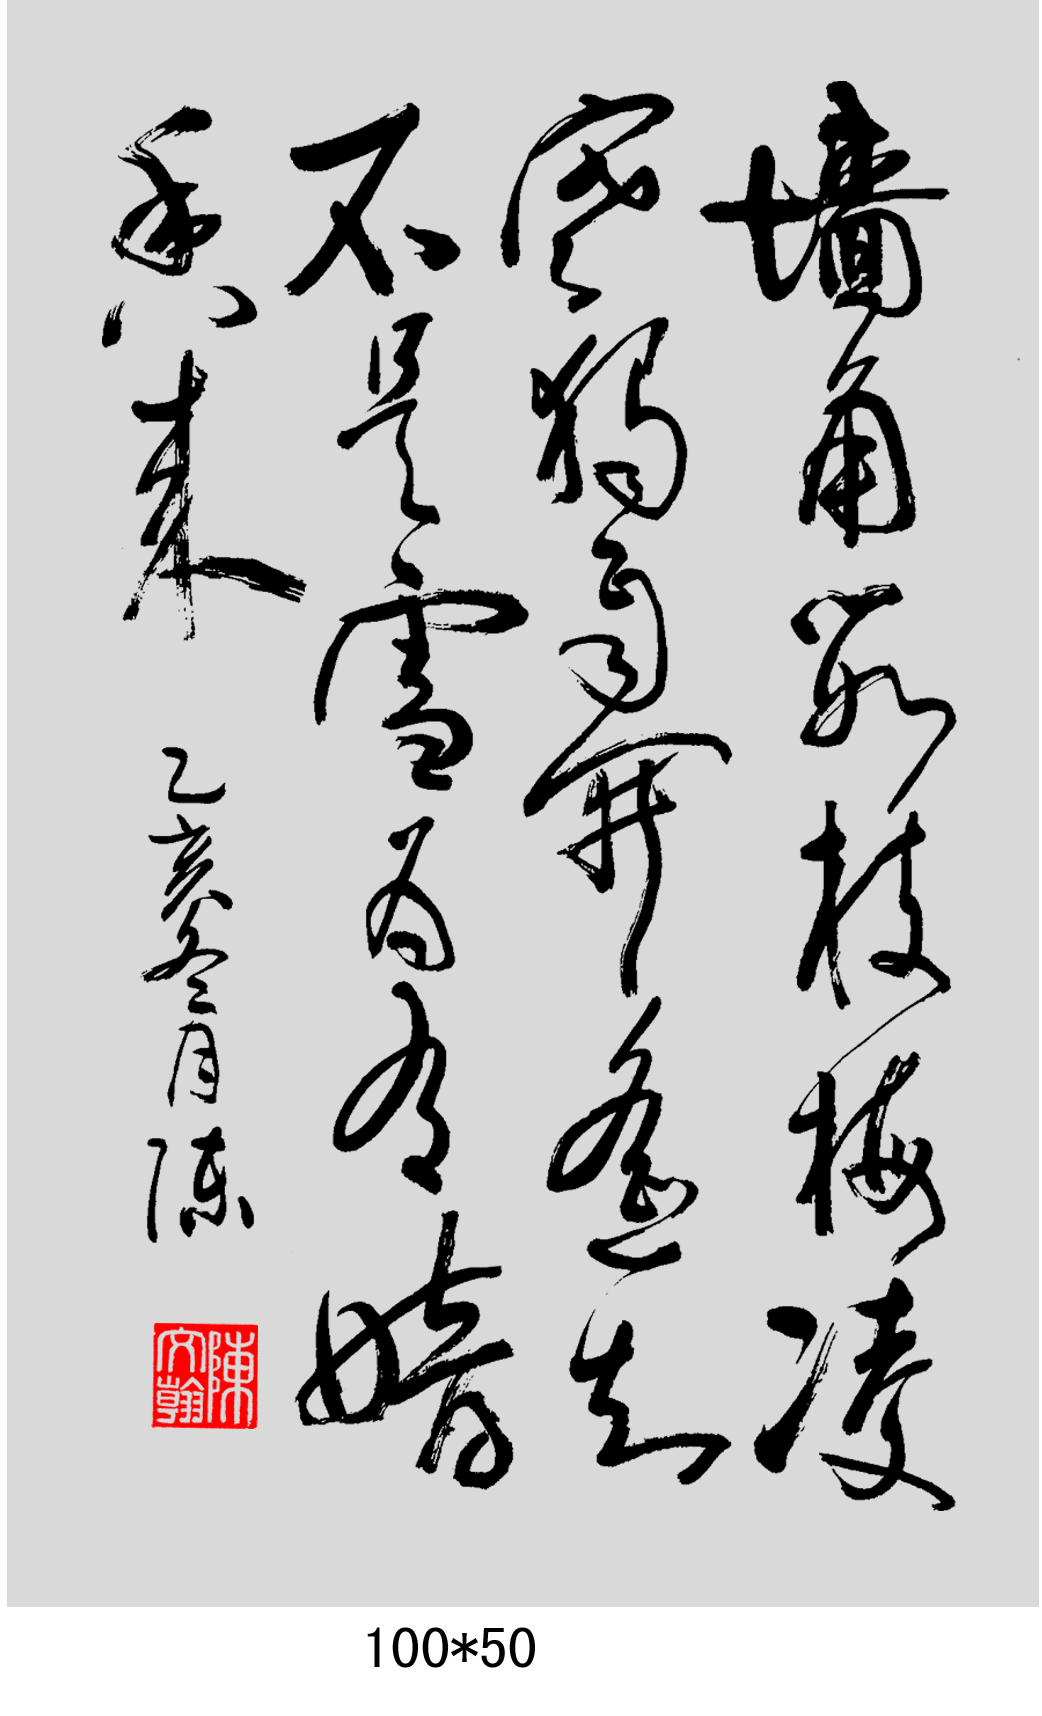 墙角数枝梅凌
寒独自开遥知
不是雪为有暗
香来
乙亥冬月陈
陳文翰
100*50